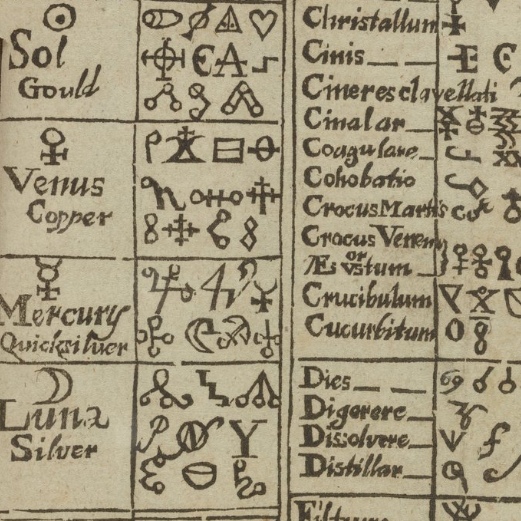 Sol
Gould
Venus
Copper
Mercury
Quicksilver
Luna
Silver
Christallum
Cinis
Cineres clavellati
Cinabar
Coagulare
Cohobatio
Crocus Martis
Crocus Vener
or
Æs ustum
Crucibulum
Cucurbitum
Dies
Digerere
Dissolvere
Distillar
Filtrum